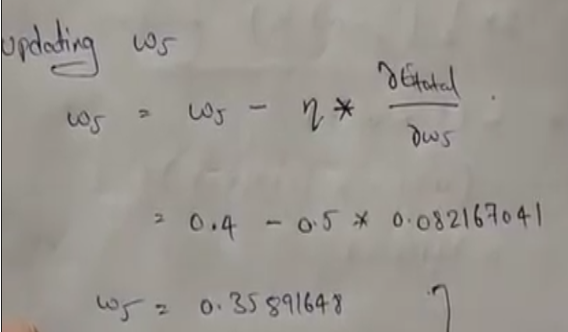 updating w5
w5 = w5 - η * ∂Etotal / ∂w5 .
= 0.4 - 0.5 * 0.082167041
w5 = 0.35891648 η